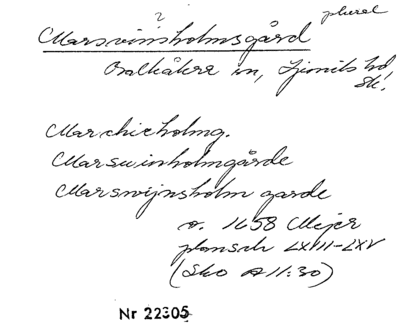 ? plural
Marsvinsholmsgård
Balkåkra sn, Ljunits hd
Sk.
Marchieholmg.
Marsuinholmgårde
Marswijnsholm garde
o. 1658 Mejer
plansch LXIII-LXV
(Sko A11:30)
Nr 22305